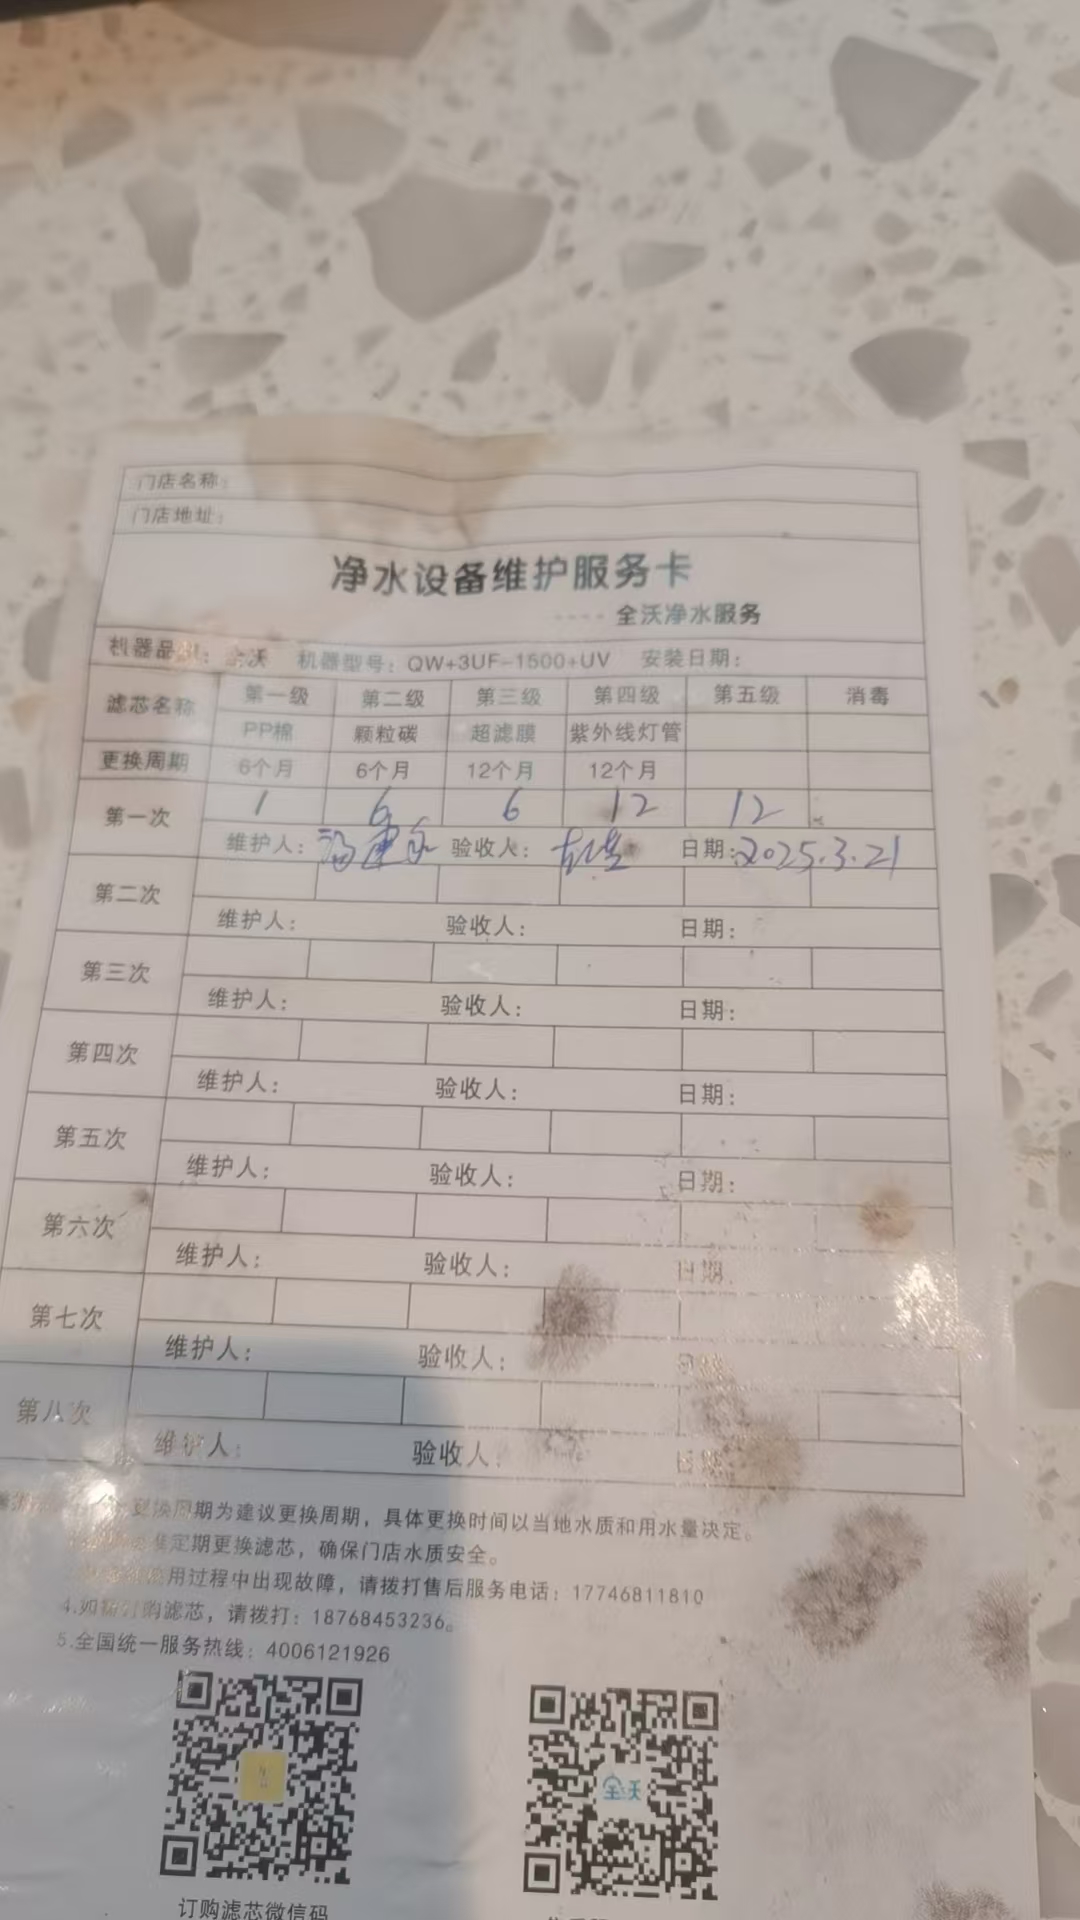 门店名称：
门店地址：
净水设备维护服务卡
---- 全沃净水服务
机器品牌：全沃 机器型号：QW+3UF-1500+UV 安装日期：
滤芯名称 第一级 第二级 第三级 第四级 第五级 消毒
PP棉 颗粒碳 超滤膜 紫外线灯管
更换周期 6个月 6个月 12个月 12个月
第一次 1 6 6 12 12
维护人： 验收人： 日期：2025.3.21
第二次
维护人： 验收人： 日期：
第三次
维护人： 验收人： 日期：
第四次
维护人： 验收人： 日期：
第五次
维护人： 验收人： 日期：
第六次
维护人： 验收人： 日期
第七次
维护人： 验收人： 日期
第八次
维护人： 验收人： 日期
更换周期为建议更换周期，具体更换时间以当地水质和用水量决定。
定期更换滤芯，确保门店水质安全。
用过程中出现故障，请拨打售后服务电话：17746811810
4.如需订购滤芯，请拨打：18768453236。
5.全国统一服务热线：4006121926
全沃
订购滤芯微信码